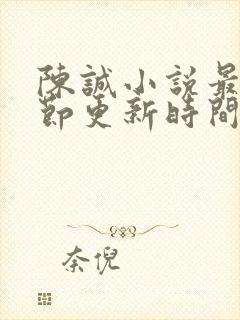 陳誠小說最
節更新時間
奈倪